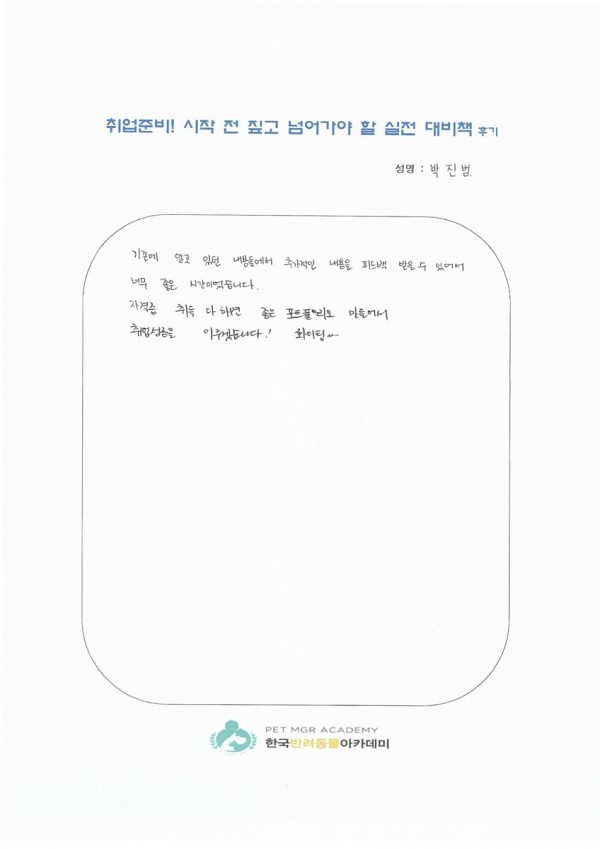 취업준비! 시작 전 짚고 넘어가야 할 실전 대비책 후기
성명 : 박진범
기존에 알고 있던 내용들에서 추가적인 내용을 피드백 받을 수 있어서
너무 좋은 시간이었습니다.
자격증 취득 다 하면 좋은 포트폴리오 만들어서
취업성공을 이루겠습니다! 화이팅~
PET MGR ACADEMY
한국반려동물아카데미